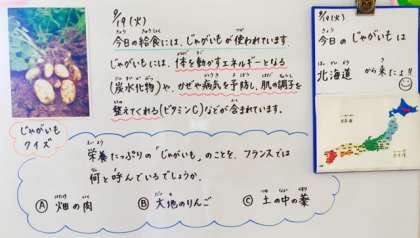 9/19(火)
今日の給食には、じゃがいもが使われています。
じゃがいもには、体を動かすエネルギーとなる
(炭水化物)や、かぜや病気を予防し、肌の調子を
整えてくれる(ビタミンC)などが含まれています。
じゃがいも
クイズ
栄養たっぷりの「じゃがいも」のことを、フランスでは
何と呼んでいるでしょうか。
Ⓐ 畑の肉 Ⓑ 大地のりんご Ⓒ 土の中の薬
9/19(火)
今日のじゃがいもは
北海道から来たよ!!